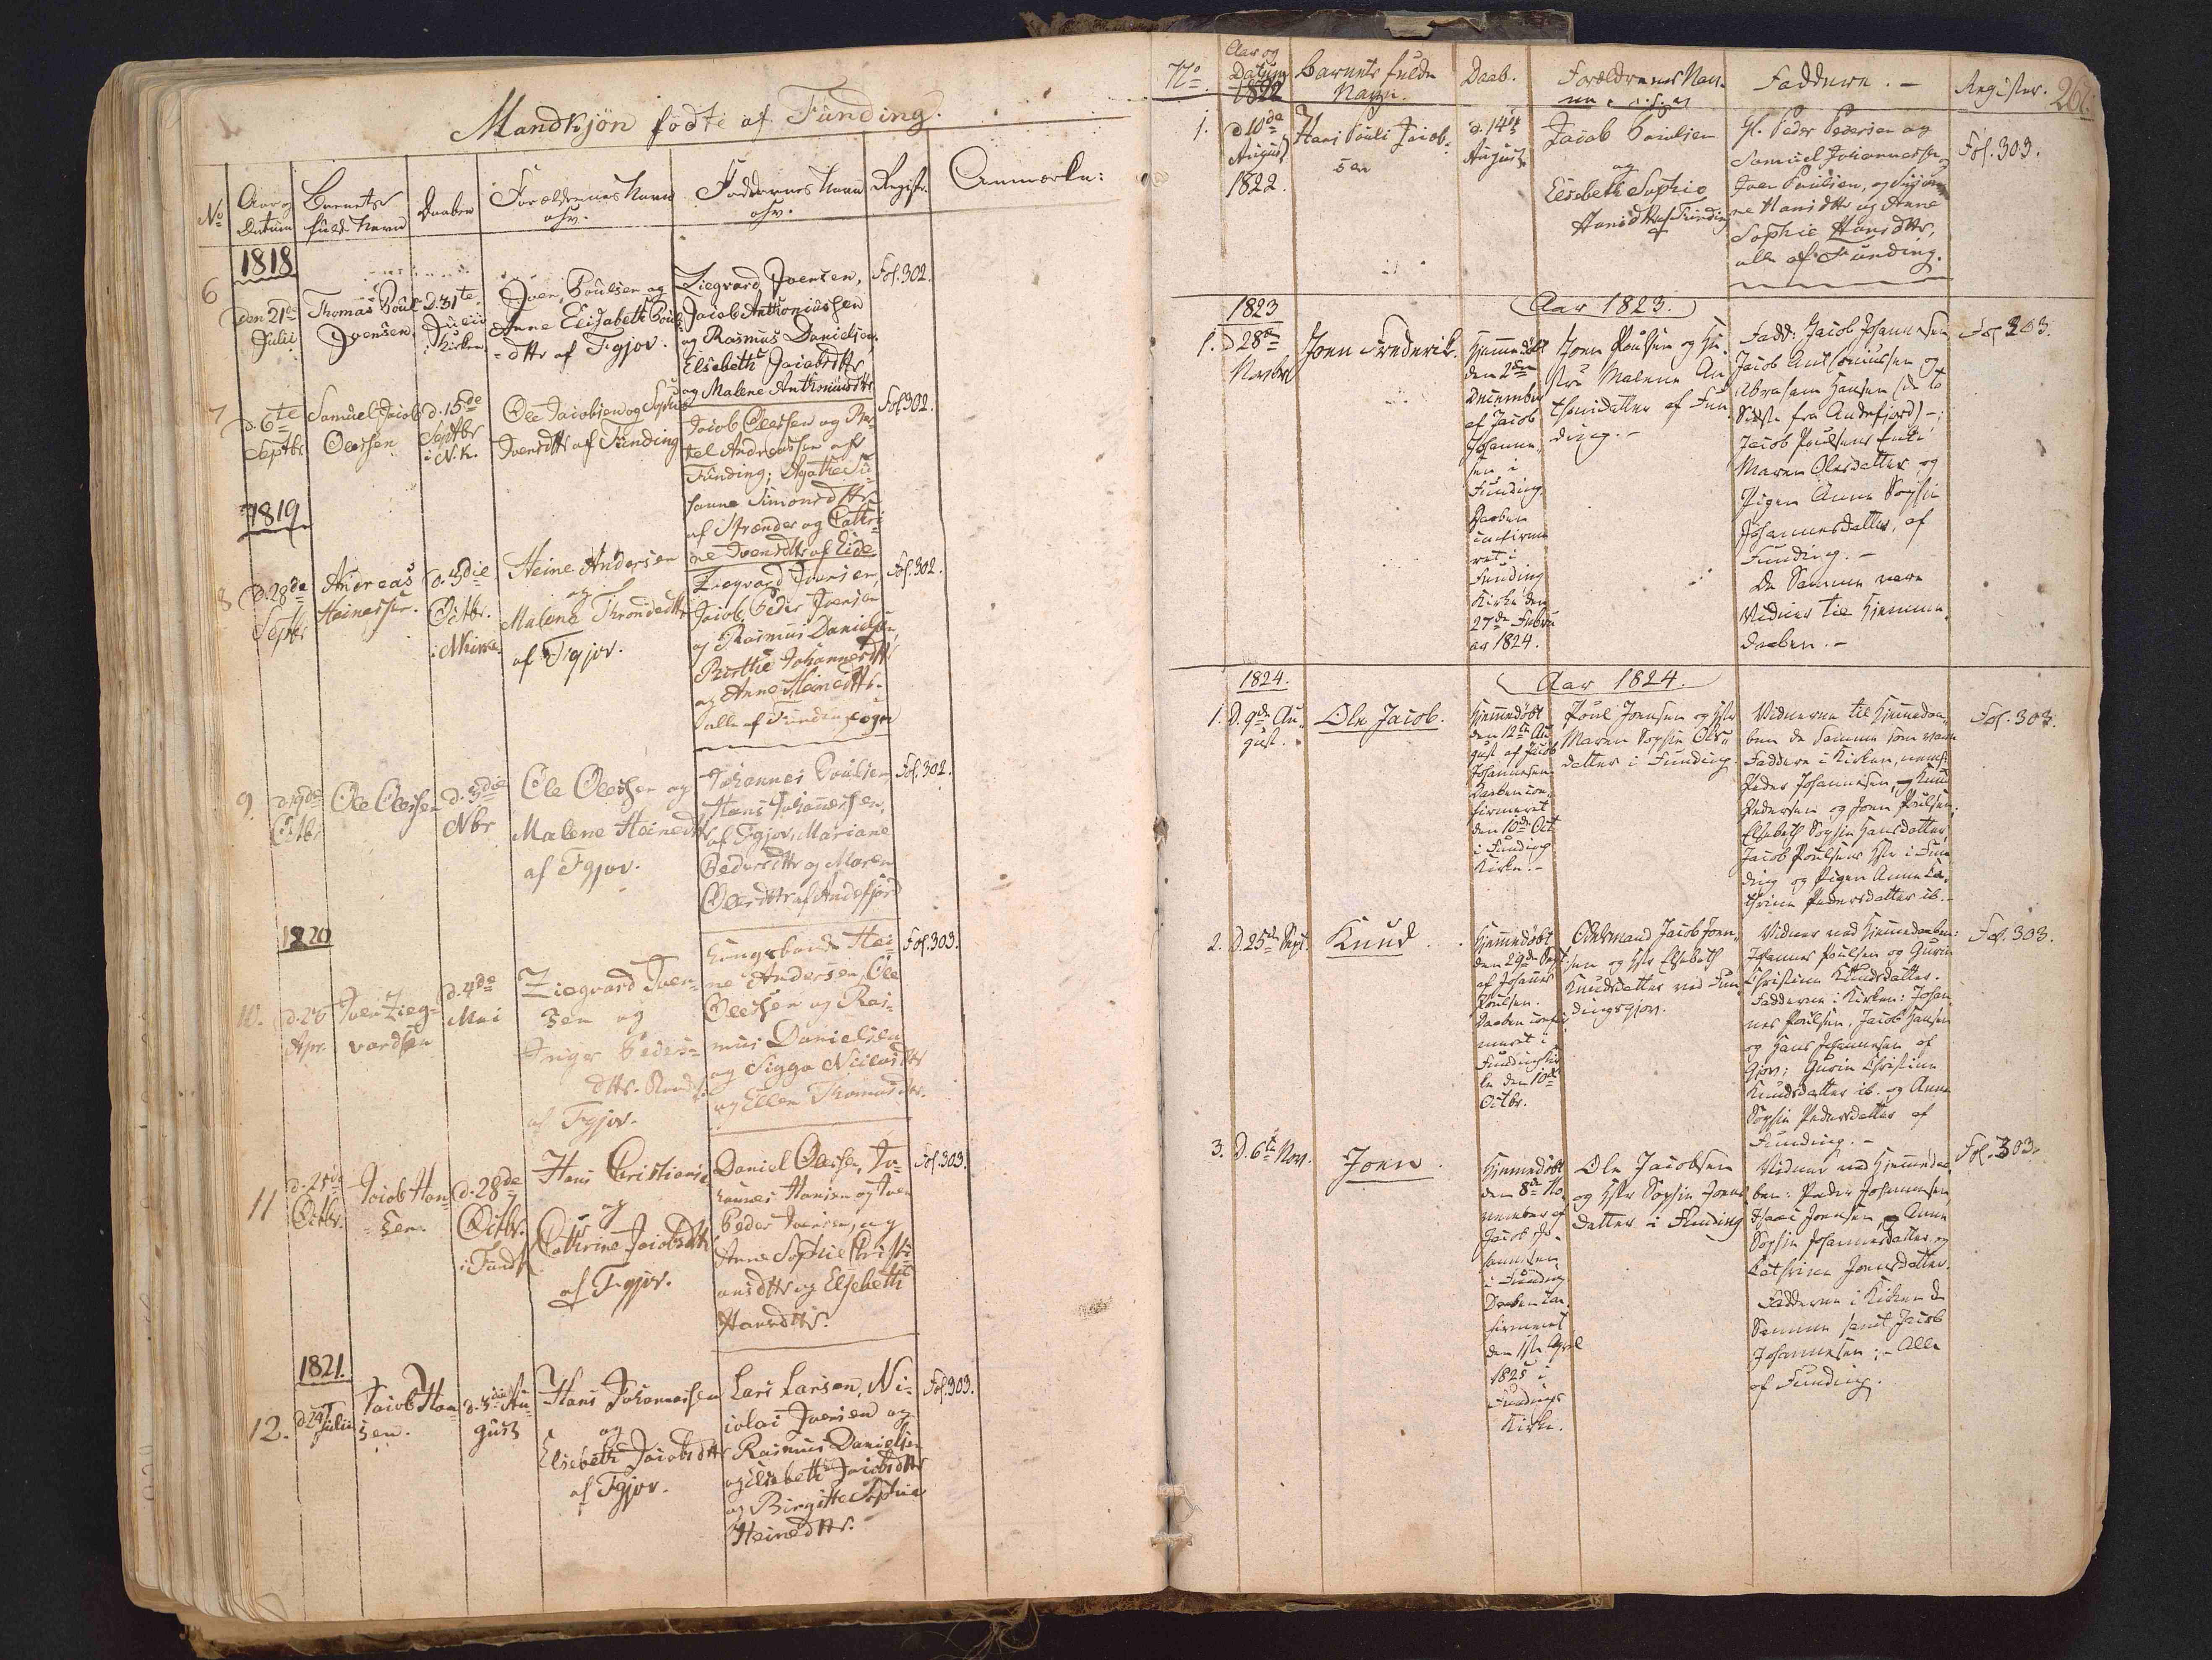 Mandkjön födte af Funding.
No
Aar og
Datum
Barnets
fulde Navn
Daaben
Forældrenes Navn
osv.
Faddernes Navn
osv.
Regist.
Anmærkn:
1818
6
den 21de
Julii
Thomas Poul
Joensen.
D. 31te
Julii
i Kirken
Joen Poulsen og
Anne Elisabeth Pouls
-dttr af Fgjov.
Ziegvard Joensen,
Jacob Anthoniussen
og Rasmus Danielsen,
Elsebeth Jacobsdttr
og Malene Anthoniusdttr
Fol. 302.
7
d. 6te
Septbr
Samuel Jacob
Olessen
d. 15de
Septbr
i N.K.
Ole Jacobsen og Sophie
Joensdttr af Funding
Jacob Olessen og
Andreassen af
Funding; Agathe Su-
sanne Simonsdttr
af Strænder og Cathri-
ne Joensdttr af Eide
Fol. 302.
1819
8
D. 28de
Septbr
Andreas
Heinessen.
d. 3die
Octbr.
Heine Andersen
og
Malene Thronsdttr
af Fgjov.
Ziegvard Joensen,
Jacob Peder Joensen
og Rasmus Danielsen,
Birthe Johannesdttr
og Anne Heinesdttr.
alle af Funding sogn
Fol. 302.
9.
d. 19de
Octbr
Ole Olessen
d. 3die
Nbr
Ole Olessen og
Malene Heinesdttr
af Fgjov.
Johannes Poulsen,
Hans Johannessen,
af Fgjov, Mariane
Pedersdttr og Maren
Olesdttr af Andefjord
Fol. 302.
1820
10.
d. 26
Apr.
Joen Zieg-
vardsen
d. 4de
Mai
Ziegvard Joen-
sen og
Inger Peders-
dttr.
af Fgjov.
Kongsbonde Hei-
ne Andersen, Ole
Olessen og Ras-
mus Danielsen
og Sigga Niclasdttr
og Ellen Thomasdttr.
Fol. 303.
11
d. 21de
Octbr.
Jacob Han-
sen.
d. 28de
Octbr.
i Fund.
Hans Christians.
og
Cathrine Jacobsdttr
af Fgjov.
Daniel Olessen, Jo-
hannes Hansen og Joen
Peder Joensen, og
Anne Sophie Christi-
ansdttr og Elsebeth
Hansdttr.
Fol. 303.
1821.
12.
d 24
Julii
Jacob Han-
sen.
d. 3die Au-
gust
Hans Johannessen
og
Elsebeth Jacobsdttr
af Fgjov.
Lars Larsen, Ni-
colai Joensen og
Rasmus Danielsen
og Elsebeth Jacobsdttr
og Birgitte Sophie
Heinesdttr.
Fol. 303.
No.
Aar og
Datum
1822
Barnets fulde
Navn.
Daab.
Forældrenes Nav-
ne
Faddere. -
Register.
261.
1.
d 10de
August
1822.
Hans Pouli Jacob-
sen
d. 14de
August
Jacob Poulsen
og
Elsebeth Sophie
Hansdttr af Funding
Gl. Peder Pedersen og
Samuel Johannessen,
Joen Poulsen, og
ne Hansdttr og Anne
Sophie Hansdttr,
alle af Funding.
Fol. 303.
1823
Aar 1823.
1.
D 28de
Novbr
Joen Frederik.
Hjemmedøbt
den 2den
December
af Jacob
Johanne-
sen i
Funding.
Daaben
confirme
ret i
Funding
Kirke den
27de Febru
ar 1824.
Joen Poulsen og Hu-
stru Malene An
thonidatter af Fun
ding. -
Fadd: Jacob Johannesen
Jacob Anthoniussen og
Abraham Hansen (de to
Sidste fra Andefjord) -;
Jacob Poulsens Enke
Maren Olesdatter, og
Pigen Anna Sophie
Johannesdatter, af
Funding. -
De Samme vare
Vidner til Hjemme
daaben. -
Fol 303.
1824.
Aar 1824.
1.
D. 9de Au-
gust.
Ole Jacob.
Hjemmedøbt
den 12te Au
gust af Jacob
Johannesen
Daaben con-
firmeret
den 10de Oct
i Funding
Kirke. -
Poul Joensen og Hstr
Maren Sophie Ole-
datter i Funding
Vidnerne til Hjemmedaa-
ben de Samme som vare
Faddere i Kirken, nemlig:
Peder Johannesen, og Knud
Pedersen og Joen Poulsen;
Elsebeth Sophie Hansdatter
Jacob Poulsens Hstr i Fun
ding og Pigen Anna Ca-
thrine Pedersdatter ib. -
Fol. 303.
2.
D. 25de Sept.
Knud
Hjemmedøbt
den 29de Sept
af Johannes
Poulsen.
Daaben confir
meret i
Funding Kir
ke den 10de
Octbr.
Odelsmand Jacob Joen-
sen og Hstr Elsebeth
Knudsdatter ved Fun
dingsgjov.
Vidner ved Hjemmedaaben:
Johannes Poulsen og Gurin
Christine Knudsdatter.
Fadderne i Kirken: Johan
nes Poulsen, Jacob Hansen
og Hans Johannesen af
Gjov; Gurin Christine
Knudsdatter ib. og Anna
Sophie Pedersdatter af
Funding. -
Fol. 303.
3.
D. 6te Nov.
Joen
Hjemmedøbt
den 8de No-
vember af
Jacob Jo-
hannesen
i Funding
Daaben con-
firmeret
den 1ste April
1825 i
Fundings
Kirke.
Ole Jacobsen
og Hstr Sophie Joens
datter i Funding
Vidner ved Hjemmedaa-
ben: Peder Johannesen,
Joensen, og Anna
Sophie Johannesdatter, og
Cathrine Joensdatter.
Fadderne i Kirken de
Samme samt Jacob
Johannesen; - Alle
af Funding.
Fol. 303.